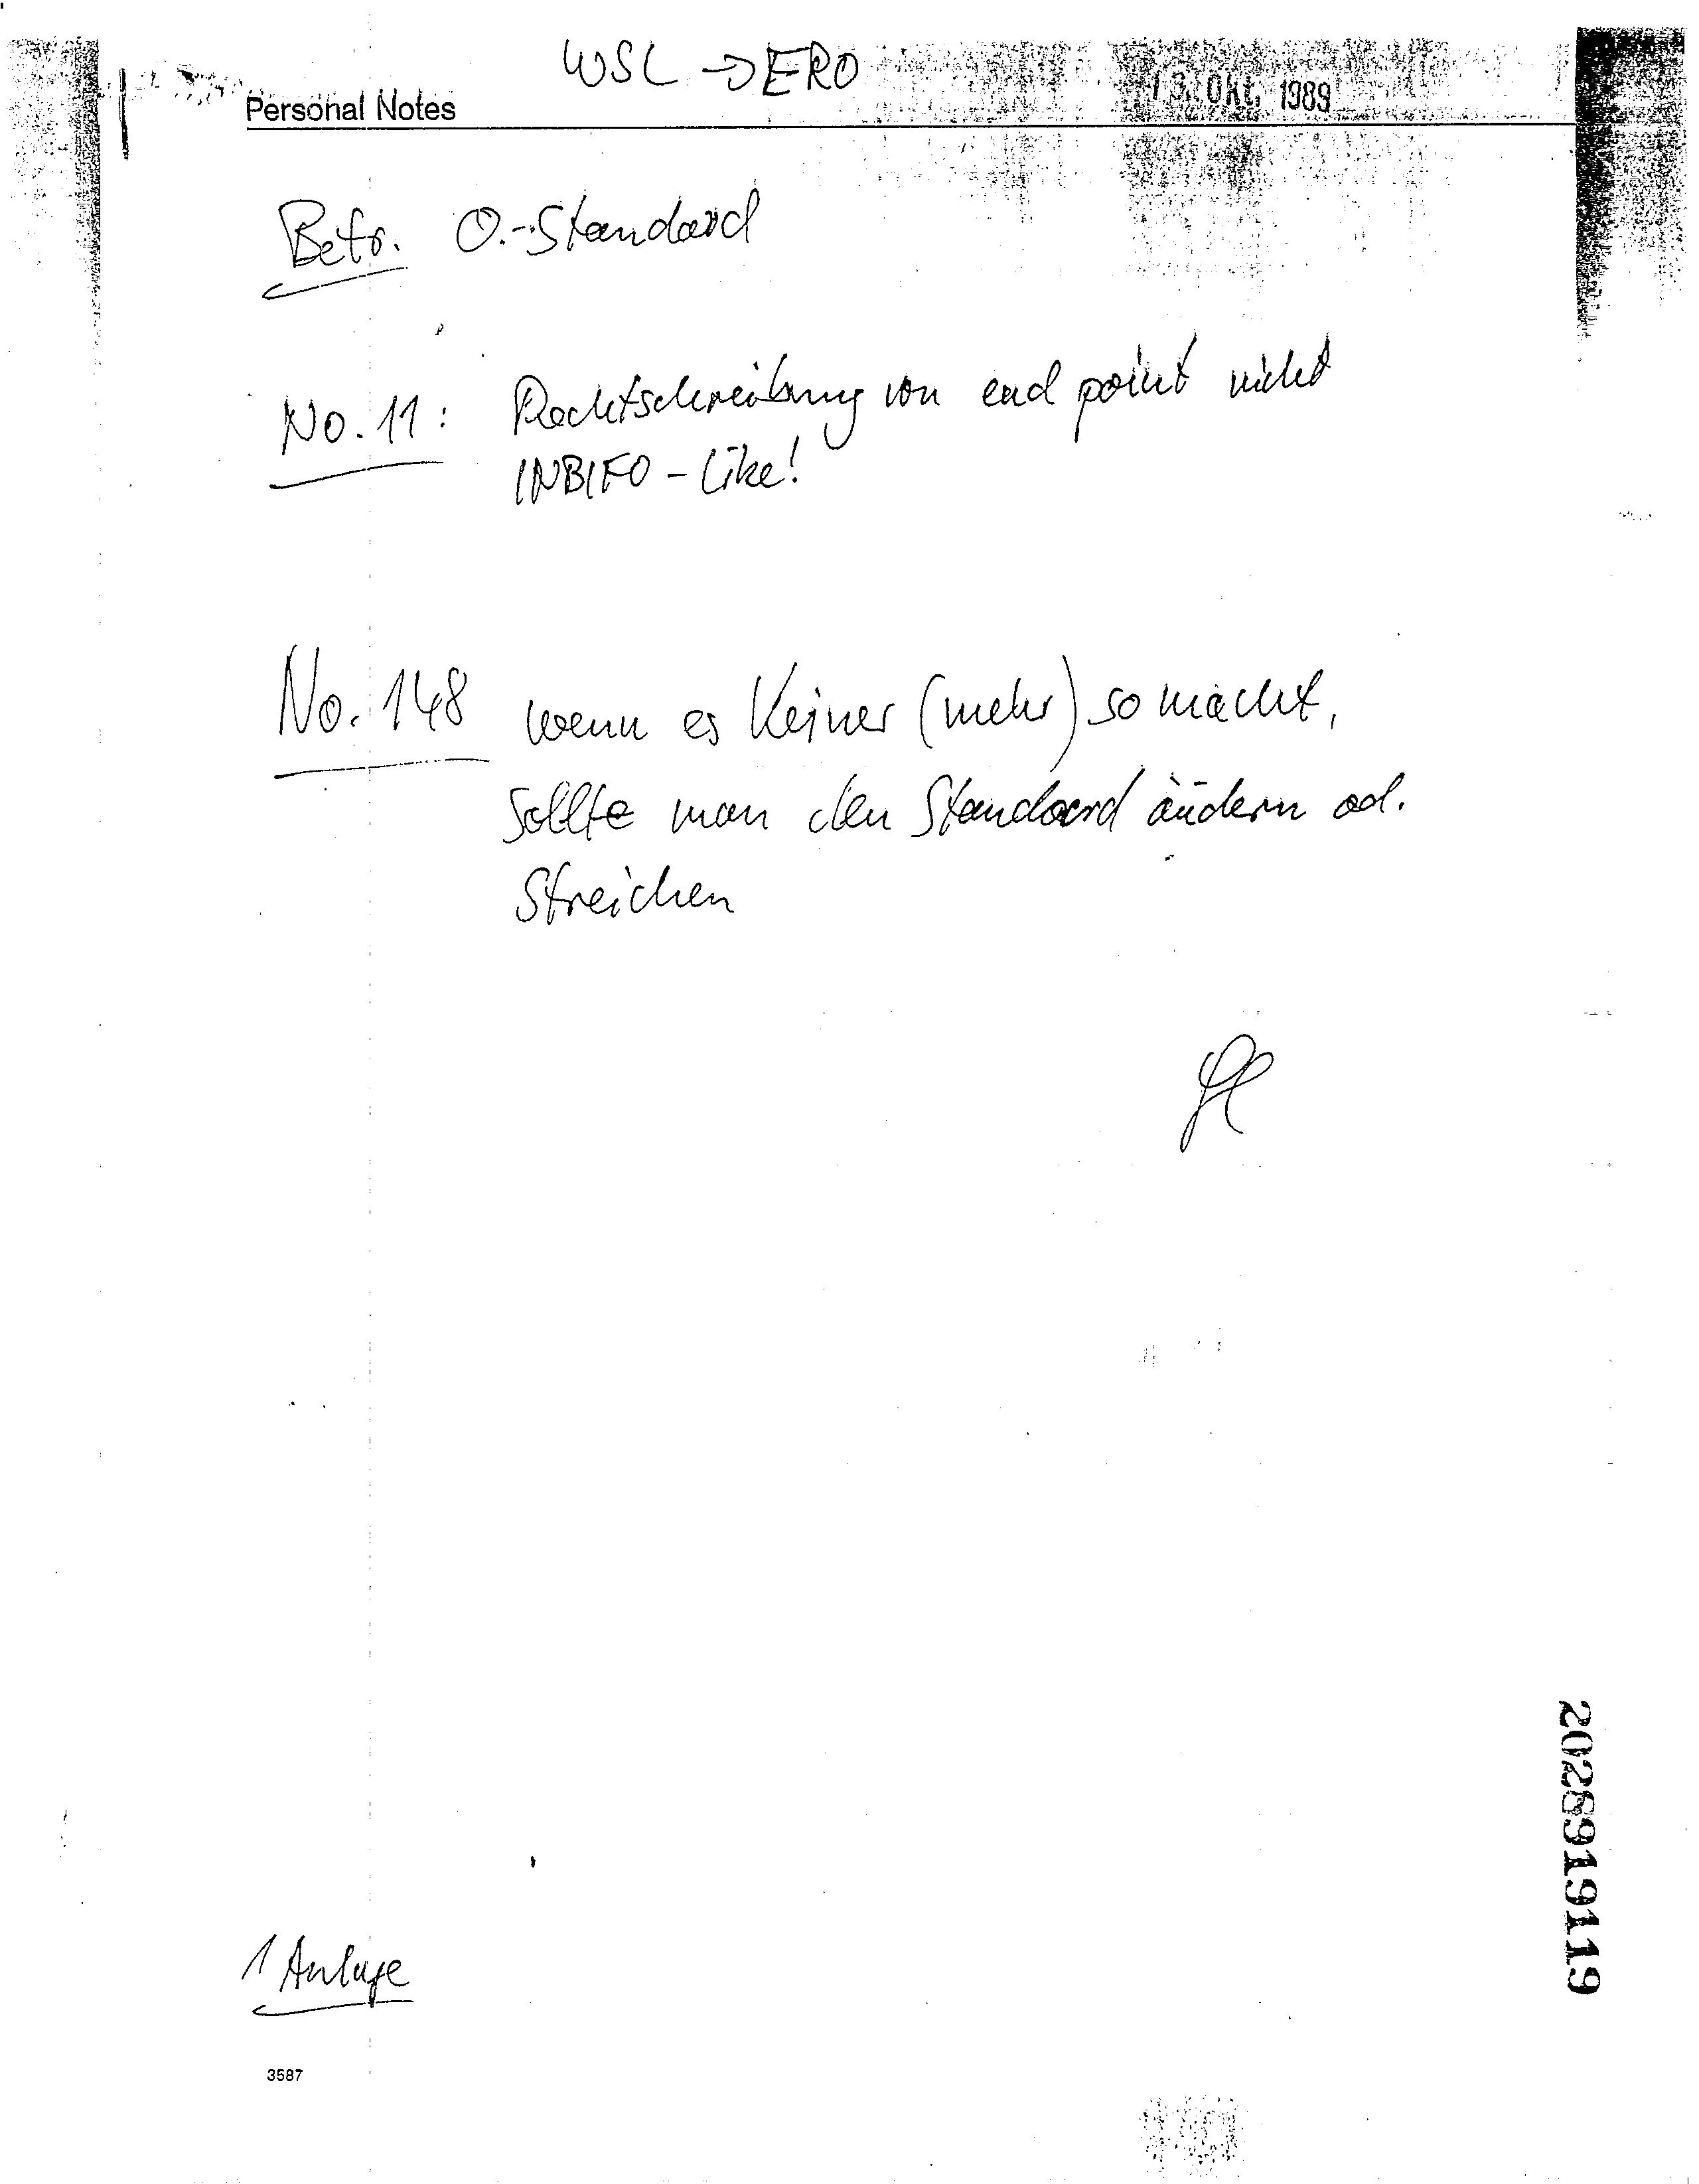 WSL → ERO
Personal Notes
13. Okt. 1989
Betr. O.-Standard
No. 11: Rechtschreibung von end point nicht
INBIFO-like!
No. 148 wenn es Keiner (mehr) so macht,
sollte man den Standard ändern od.
Streichen
1 Anlage
3587
2028919119